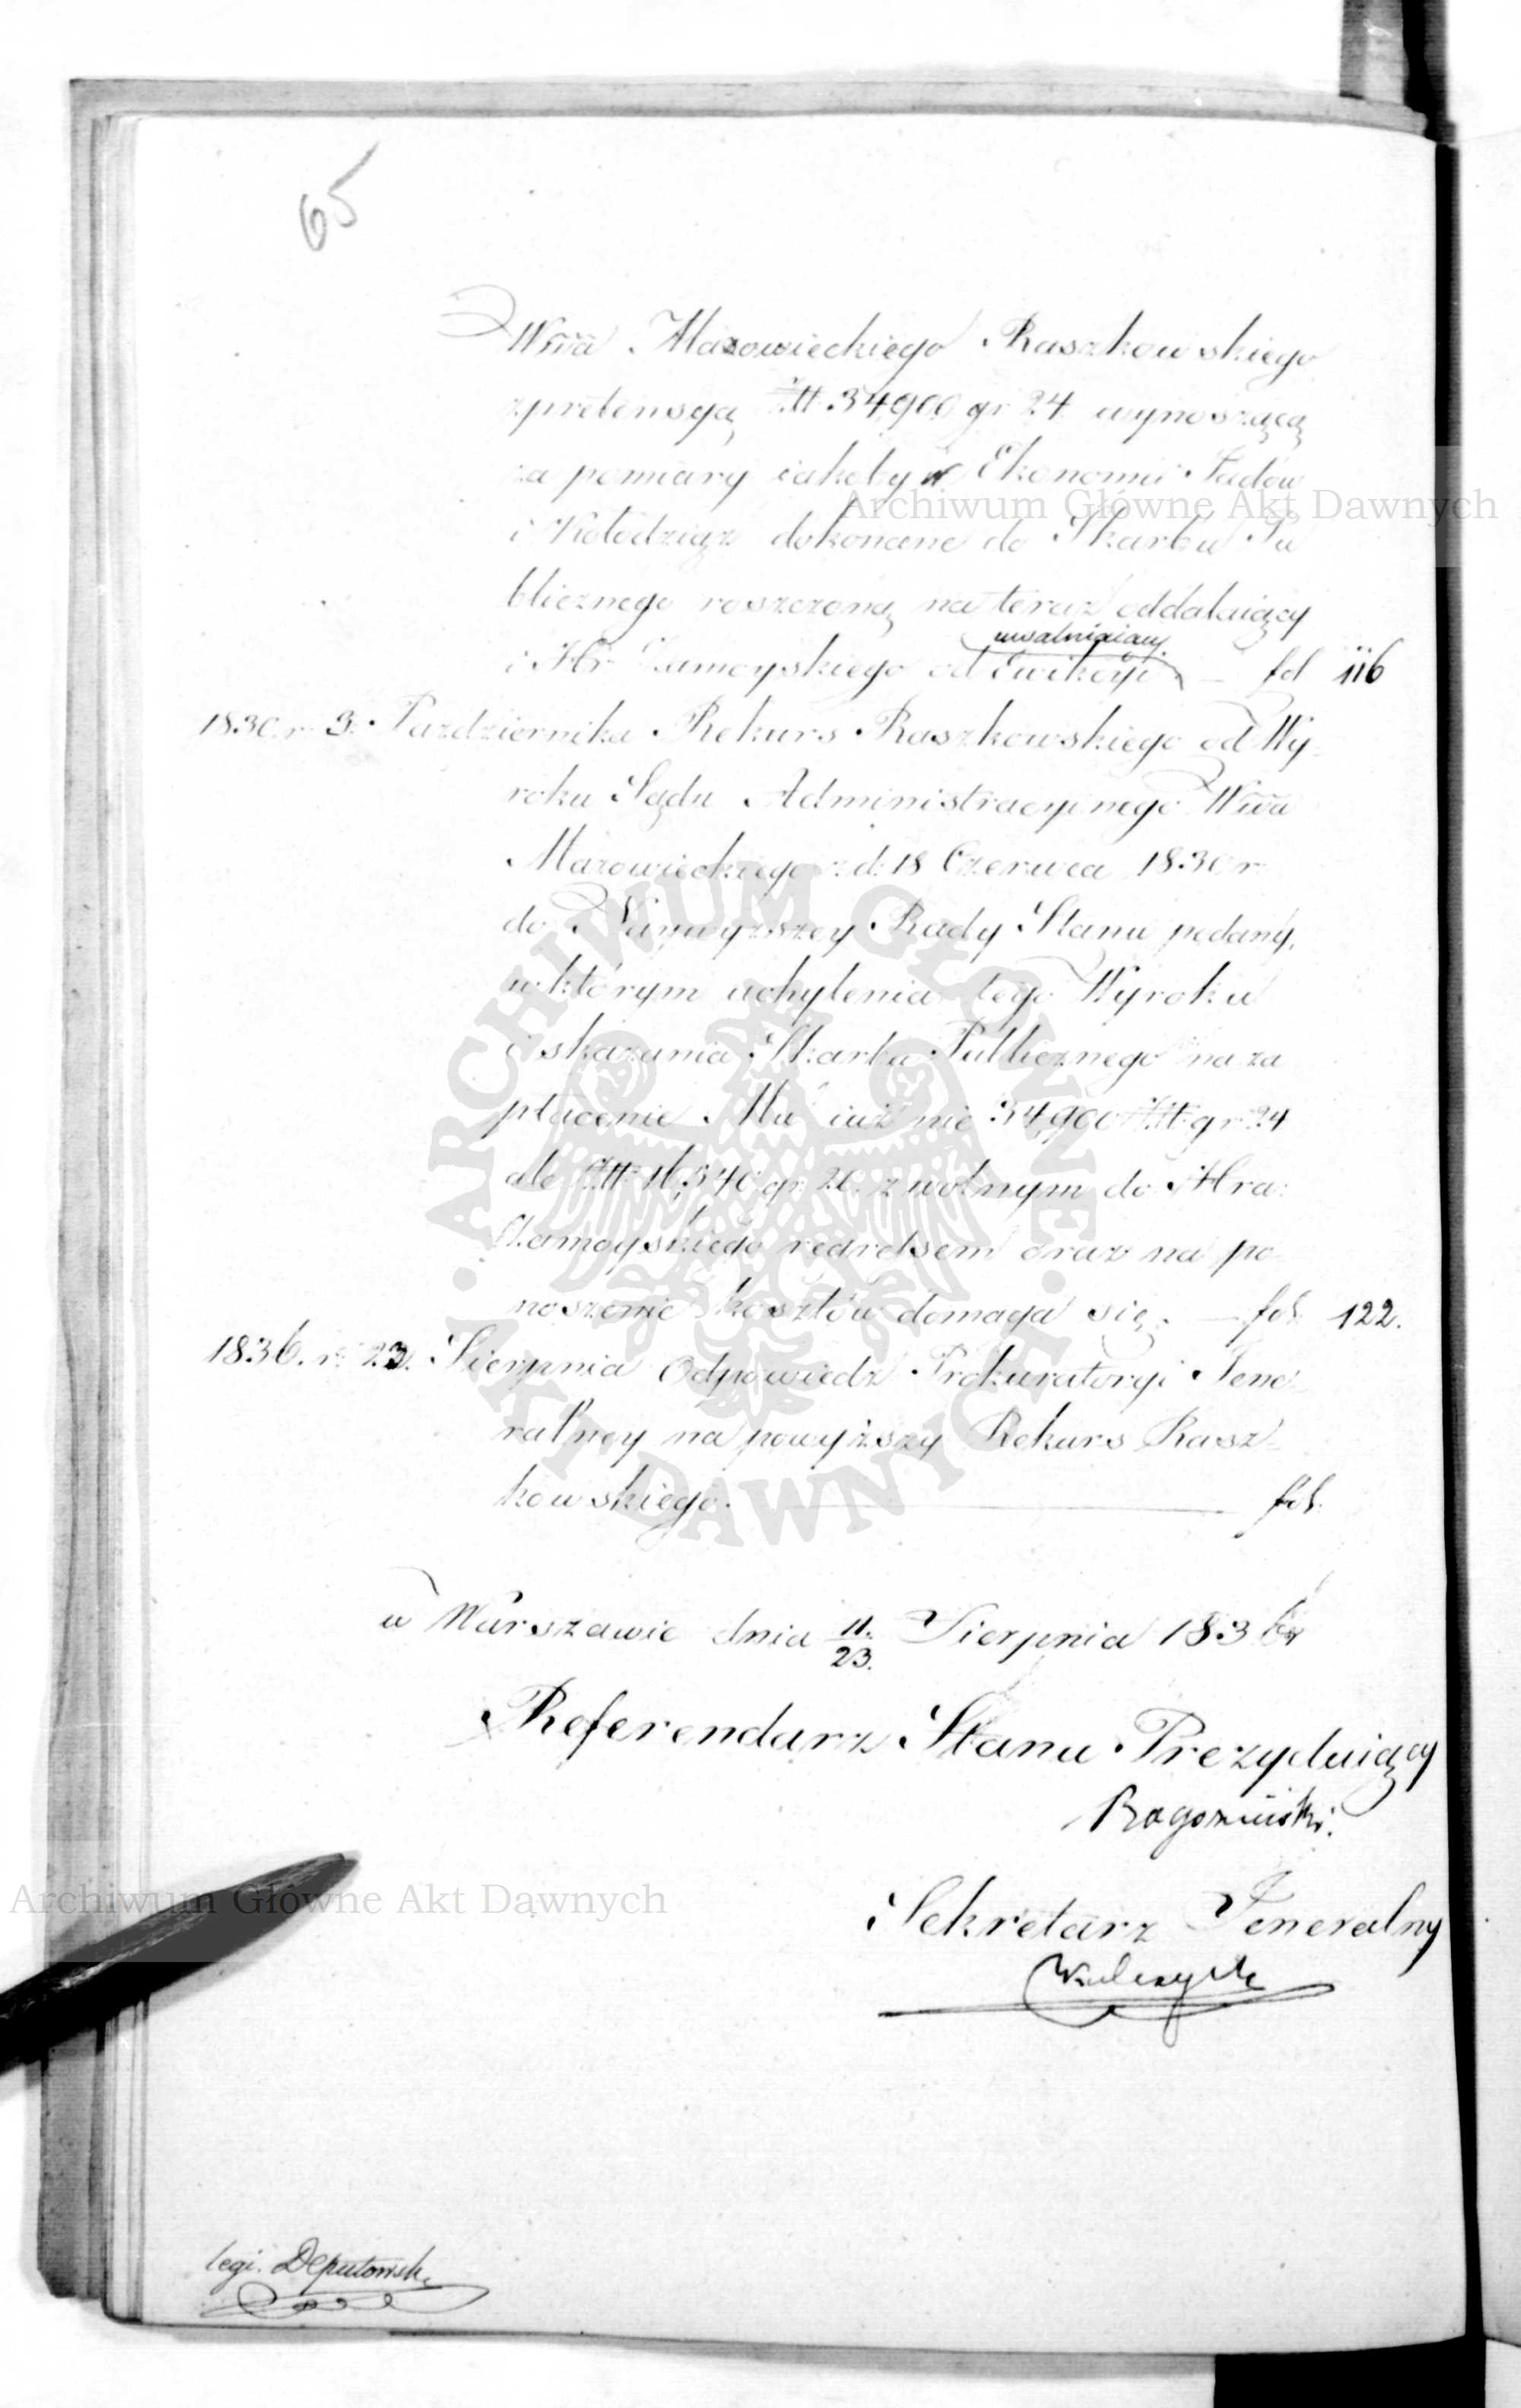 65
Wwa Mazowieckiego Raszkowskiego
z pretensyą Złt 34,900 gr 24 wynoszącą
za pomiary iakoby w Ekonomii Jadów
i Kołodziąż dokonane do Skarbu Pu
blicznego roszczoną na teraz oddalaiący
uwalniaiący
i Hr Zamoyskiego od Ewikcyi — fol 116
1830. r. 3. Pazdziernika Rekurs Raszkowskiego od Wy-
roku Sądu Administracyinego Wwa
Mazowieckiego z d. 18 Czerwca 1830 r
do Naywyższey Rady Stanu podany,
w którym uchylenia tego Wyroku
i skazania Skarbu Publicznego na za
płacenie Mu iuż nie 34,900 Złt gr 24
ale Złt 16,540 gr 20. z wolnym do Hra:
Zamoyskiego regressem oraz na po
noszenie kosztów domaga się. — fol. 122.
1836. r. 23. Sierpnia Odpowiedz Prokuratoryi Gene-
ralney na powyższy Rekurs Rasz-
kowskiego. — fol.
w Warszawie dnia 11./23. Sierpnia 1836
Referendarz Stanu Prezyduiący
Sekretarz Generalny
legi.
Archiwum Główne Akt Dawnych
Archiwum Główne Akt Dawnych
ARCHIWUM GŁÓWNE AKT DAWNYCH